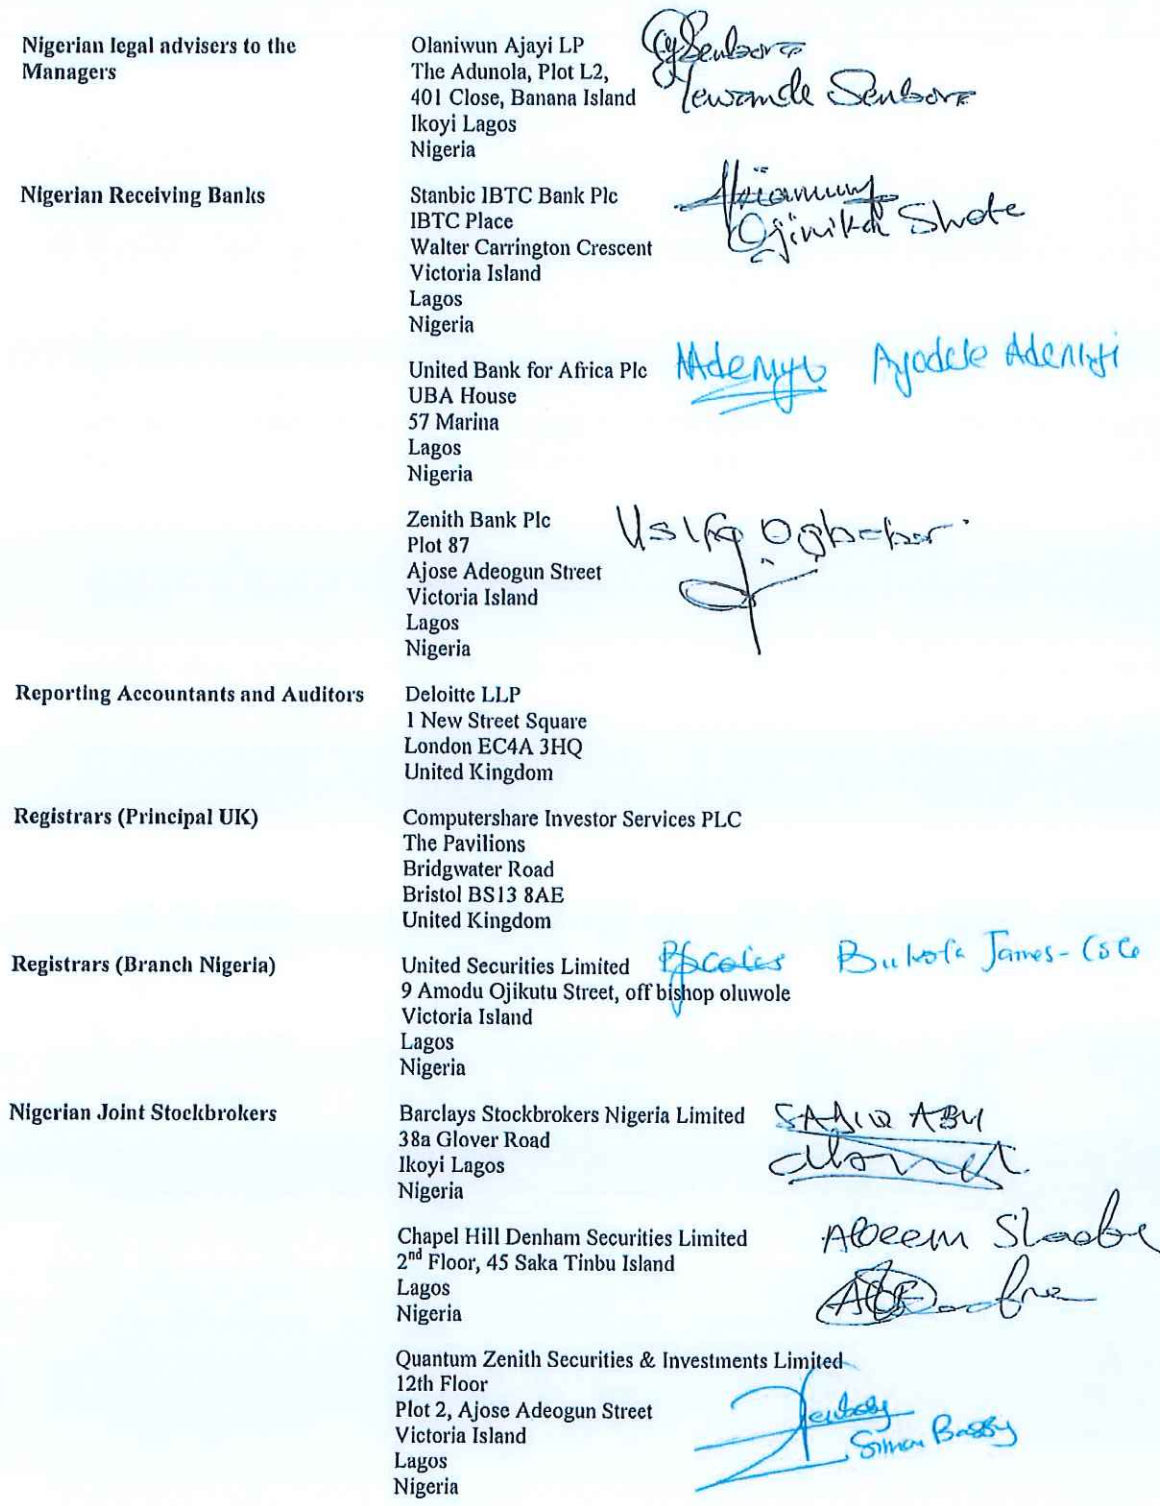 Nigerian legal advisers to the
Managers
Olaniwun Ajayi LP
The Adunola, Plot L2,
401 Close, Banana Island
Ikoyi Lagos
Nigeria
Senbore
Yewande Senbore
Nigerian Receiving Banks
Stanbic IBTC Bank Plc
IBTC Place
Walter Carrington Crescent
Victoria Island
Lagos
Nigeria
Ojinika Shote
United Bank for Africa Plc
UBA House
57 Marina
Lagos
Nigeria
Ayodele Adeniyi
Zenith Bank Plc
Plot 87
Ajose Adeogun Street
Victoria Island
Lagos
Nigeria
Reporting Accountants and Auditors
Deloitte LLP
1 New Street Square
London EC4A 3HQ
United Kingdom
Registrars (Principal UK)
Computershare Investor Services PLC
The Pavilions
Bridgwater Road
Bristol BS13 8AE
United Kingdom
Registrars (Branch Nigeria)
United Securities Limited
9 Amodu Ojikutu Street, off bishop oluwole
Victoria Island
Lagos
Nigeria
Bukola James-Cole
Nigerian Joint Stockbrokers
Barclays Stockbrokers Nigeria Limited
38a Glover Road
Ikoyi Lagos
Nigeria
SADIQ ABU
Chapel Hill Denham Securities Limited
2nd Floor, 45 Saka Tinbu Island
Lagos
Nigeria
Quantum Zenith Securities & Investments Limited
12th Floor
Plot 2, Ajose Adeogun Street
Victoria Island
Lagos
Nigeria
Simon Bassy